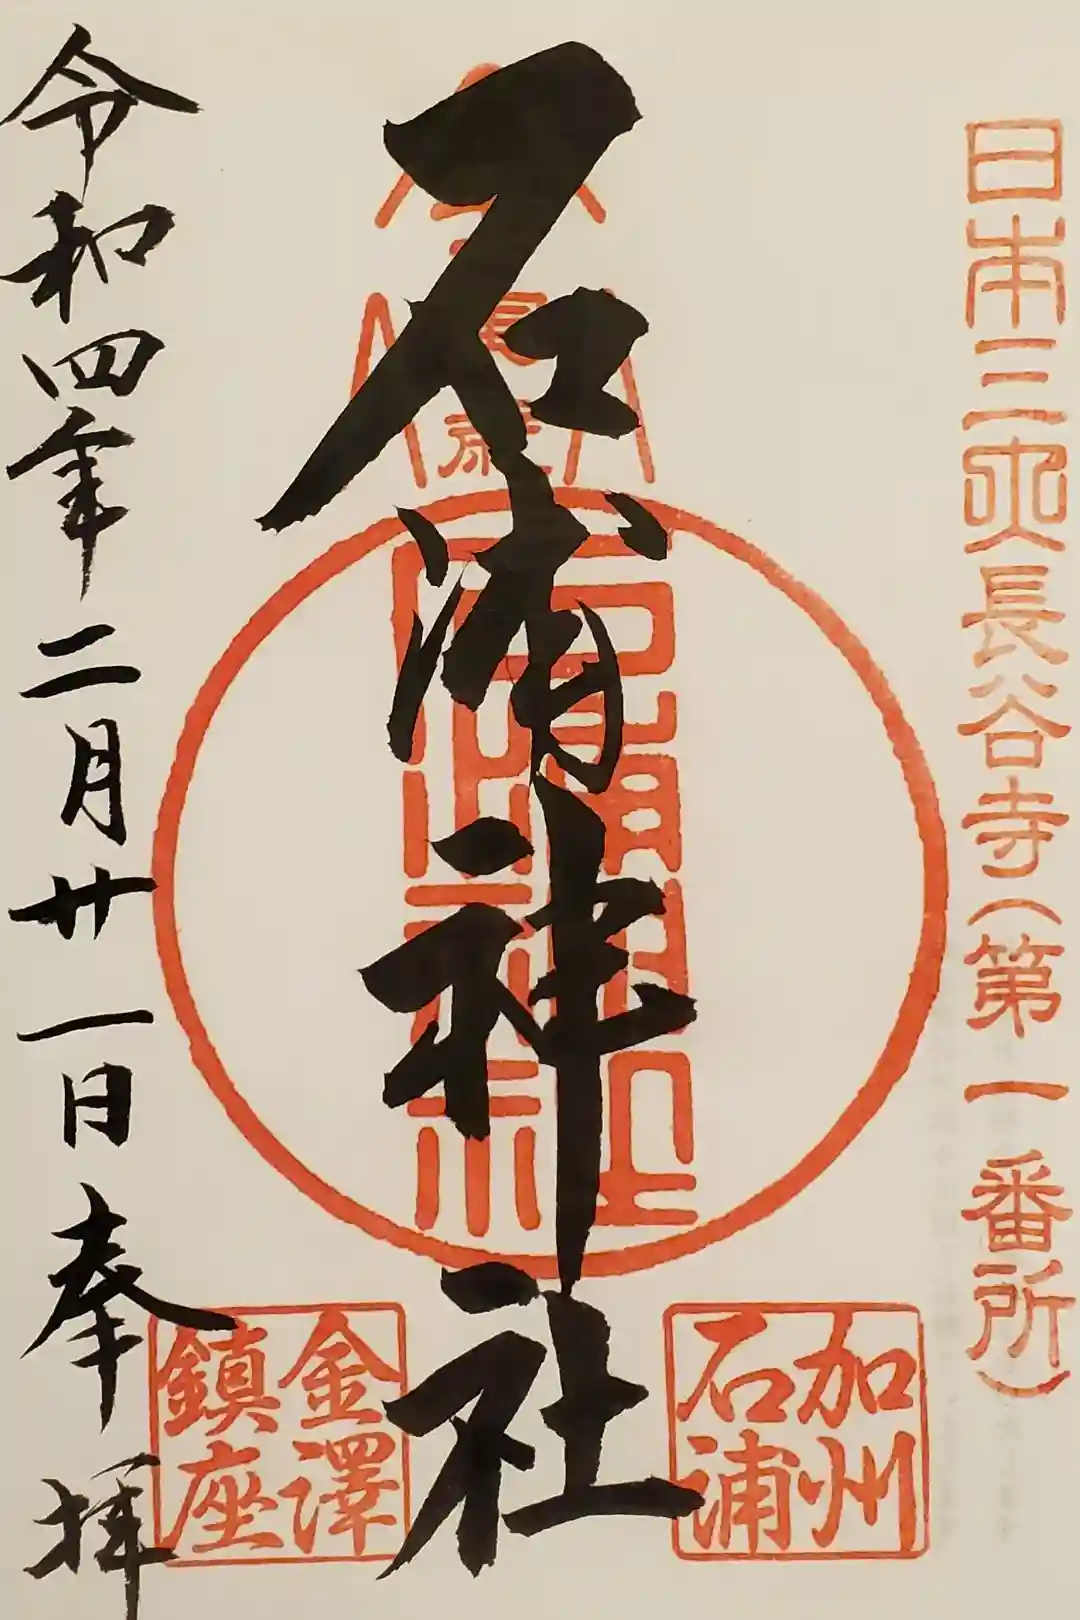 日本三所長谷寺(第一番所)
加州
石浦
石浦神社
金澤
鎮座
令和四年二月廿一日奉拝